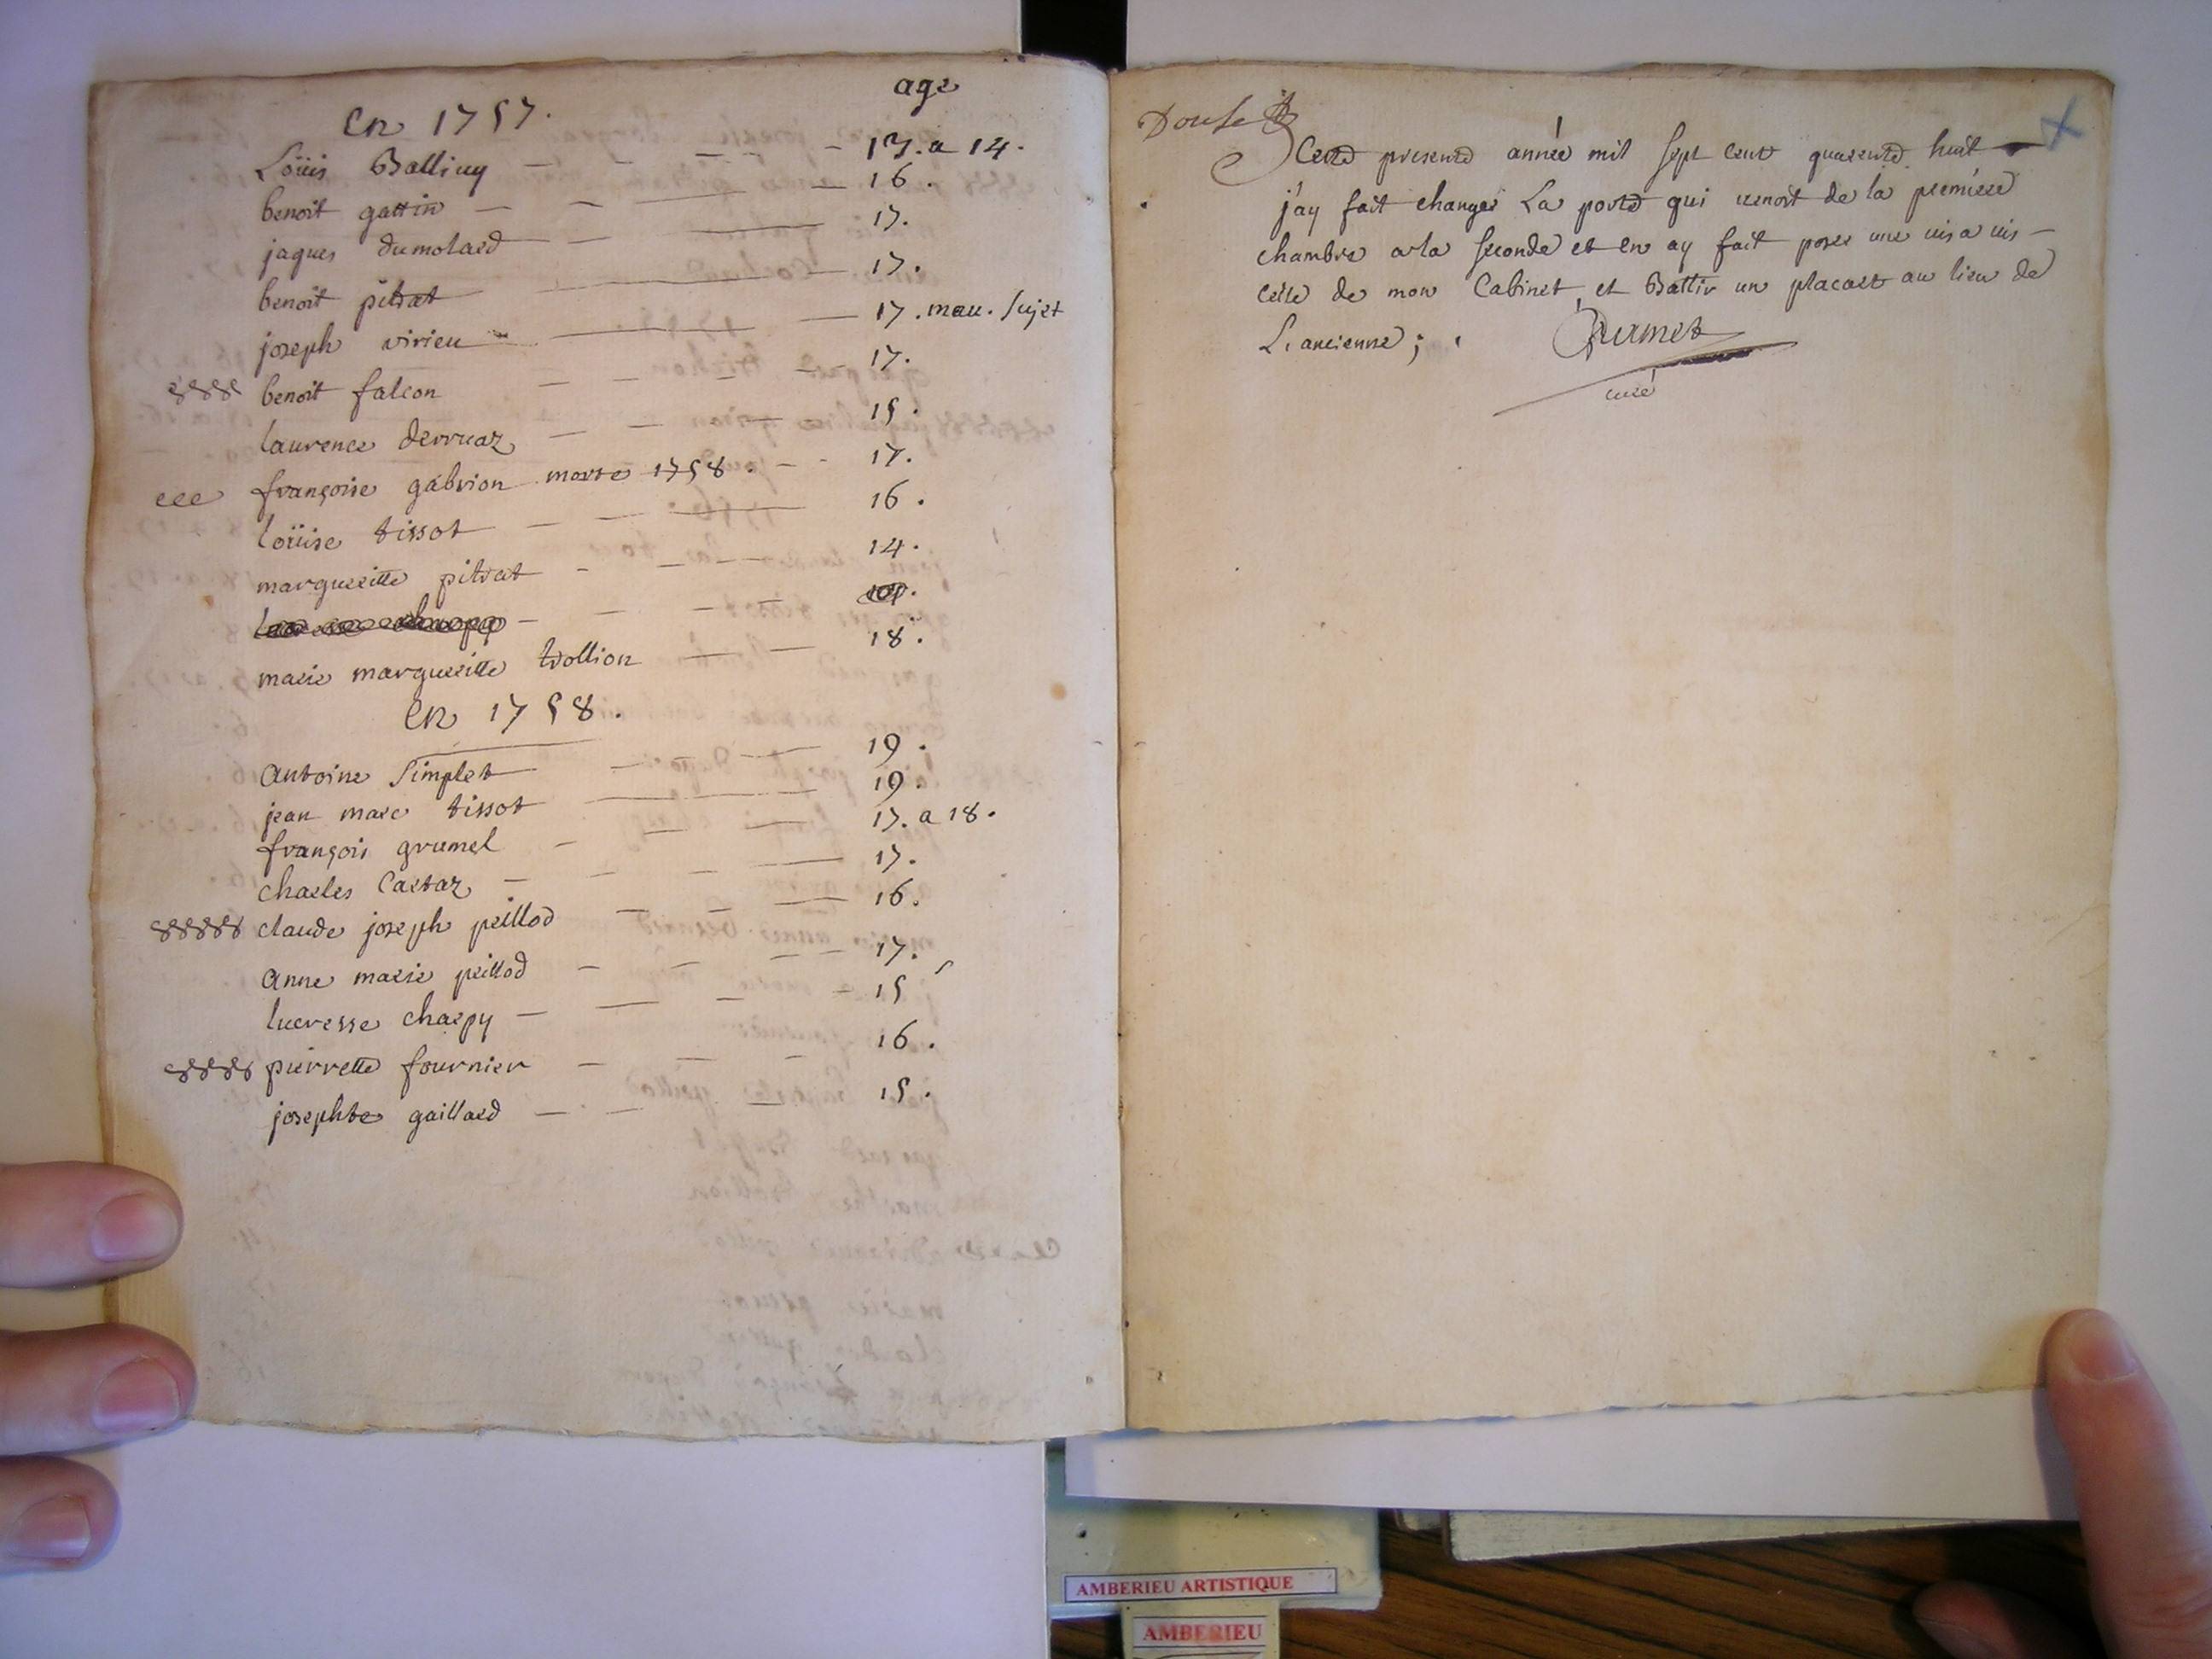 age
en 1757.
Loüis Balliuy - - - - 13. a 14.
benoit gattin - - - - 16.
jaques dumolard - - - 17.
benoit pitrat - 17.
joseph virieu - - - 17. mau. sujet
benoit falcon - - - - 17.
laurence derruaz - - - - 15.
françoise gabrion morte 1758. - - 17.
loüise tissot - - - 16.
margueritte pitrat - - - - 14.
marie margueritte trollion - - 18.
en 1758.
antoine simplet - - - 19.
jean marc tissot - - 19.
françois grumel - - - 17. a 18.
charles Cartaz - - - - 17.
claude joseph peillod - - - 16.
anne marie peillod - - - - 17.
lucresse charpy - - - - 15
pierrette fournier - - - 16.
josephte gaillard - - - 15.
Cette presente année mil sept cent quarente huit
j'ay fait changer La porte qui venoit de la premiere
chambre a la seconde et en ay fait poser une vis a vis -
celle de mon Cabinet et Battir un placart au lieu de
L'ancienne;
Grumet
curé
AMBERIEU ARTISTIQUE
AMBERIEU